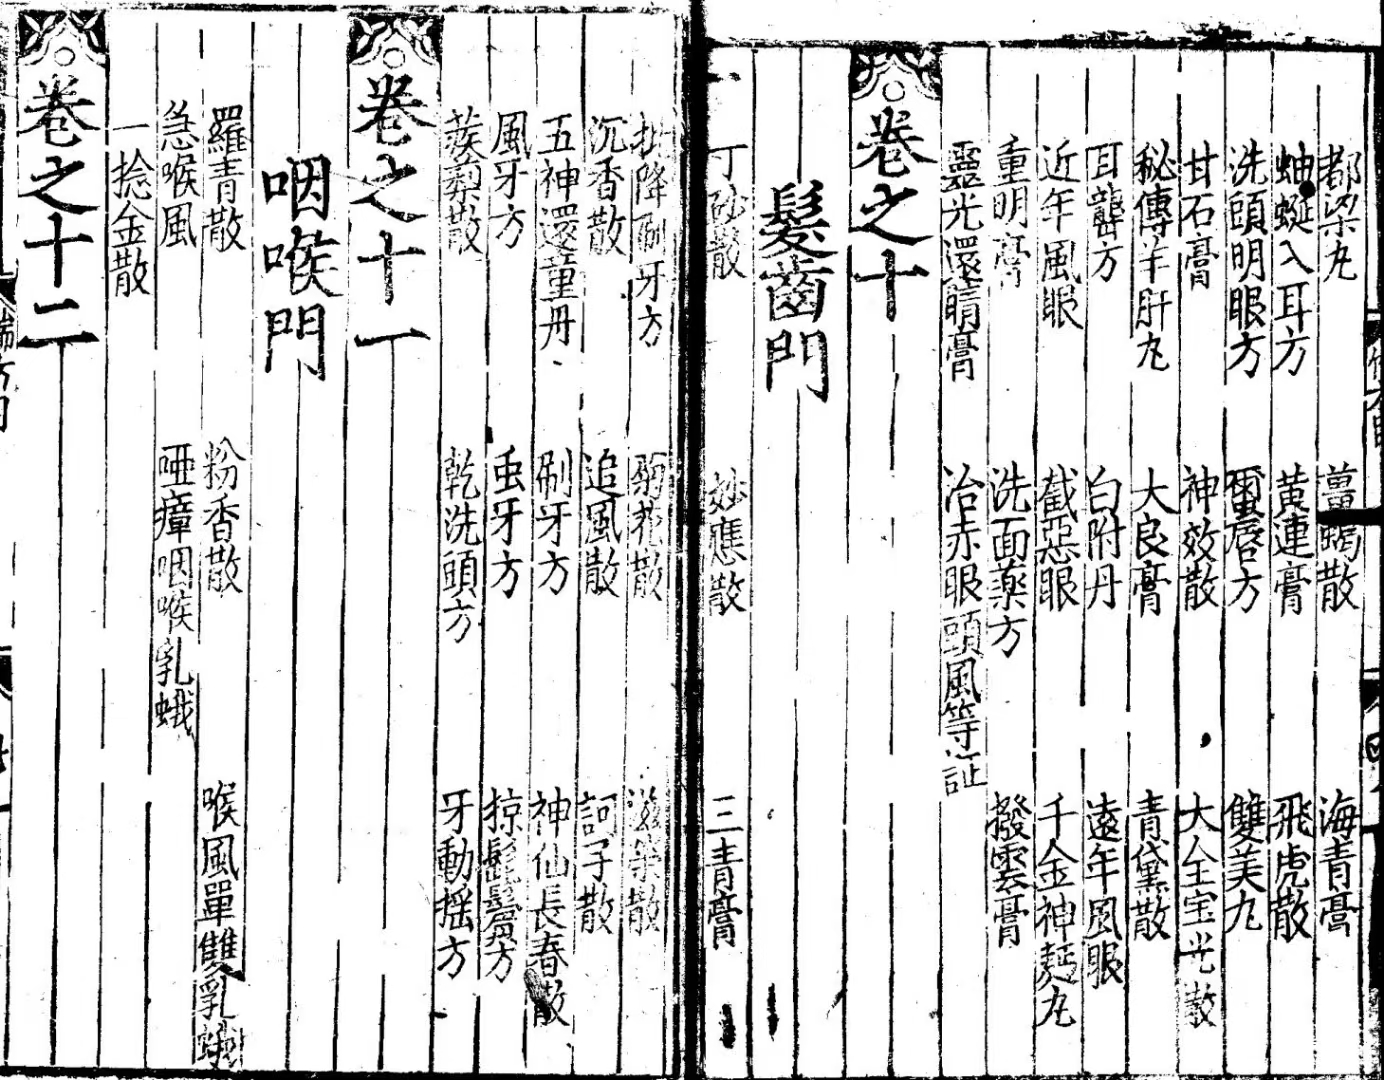 都梁丸 薑蝎散 海青膏
蚰蜒入耳方 黄連膏 飛虎散
洗頭明眼方 唇方 雙美丸
甘石膏 神效散 大全宝光散
秘傳羊肝丸 大良膏 青黛散
耳聾方 白附丹 遠年風眼
近年風眼 截惡眼 千金神麯丸
重明膏 洗面藥方 撥雲膏
靈光還睛膏 治赤眼頭風等証
卷之十
髮齒門
丁砂散 妙應散 三青膏
降 牙方 菊花散 散
沉香散 追風散 訶子散
五神還童丹 刷牙方 神仙長春散
風牙方 虫牙方 掠髭鬢方
蒺䔧散 乾洗頭方 牙動揺方
卷之十一
咽喉門
羅青散 粉香散 喉風單雙乳蛾
急喉風 啞瘴咽喉乳蛾
一捻金散
卷之十二